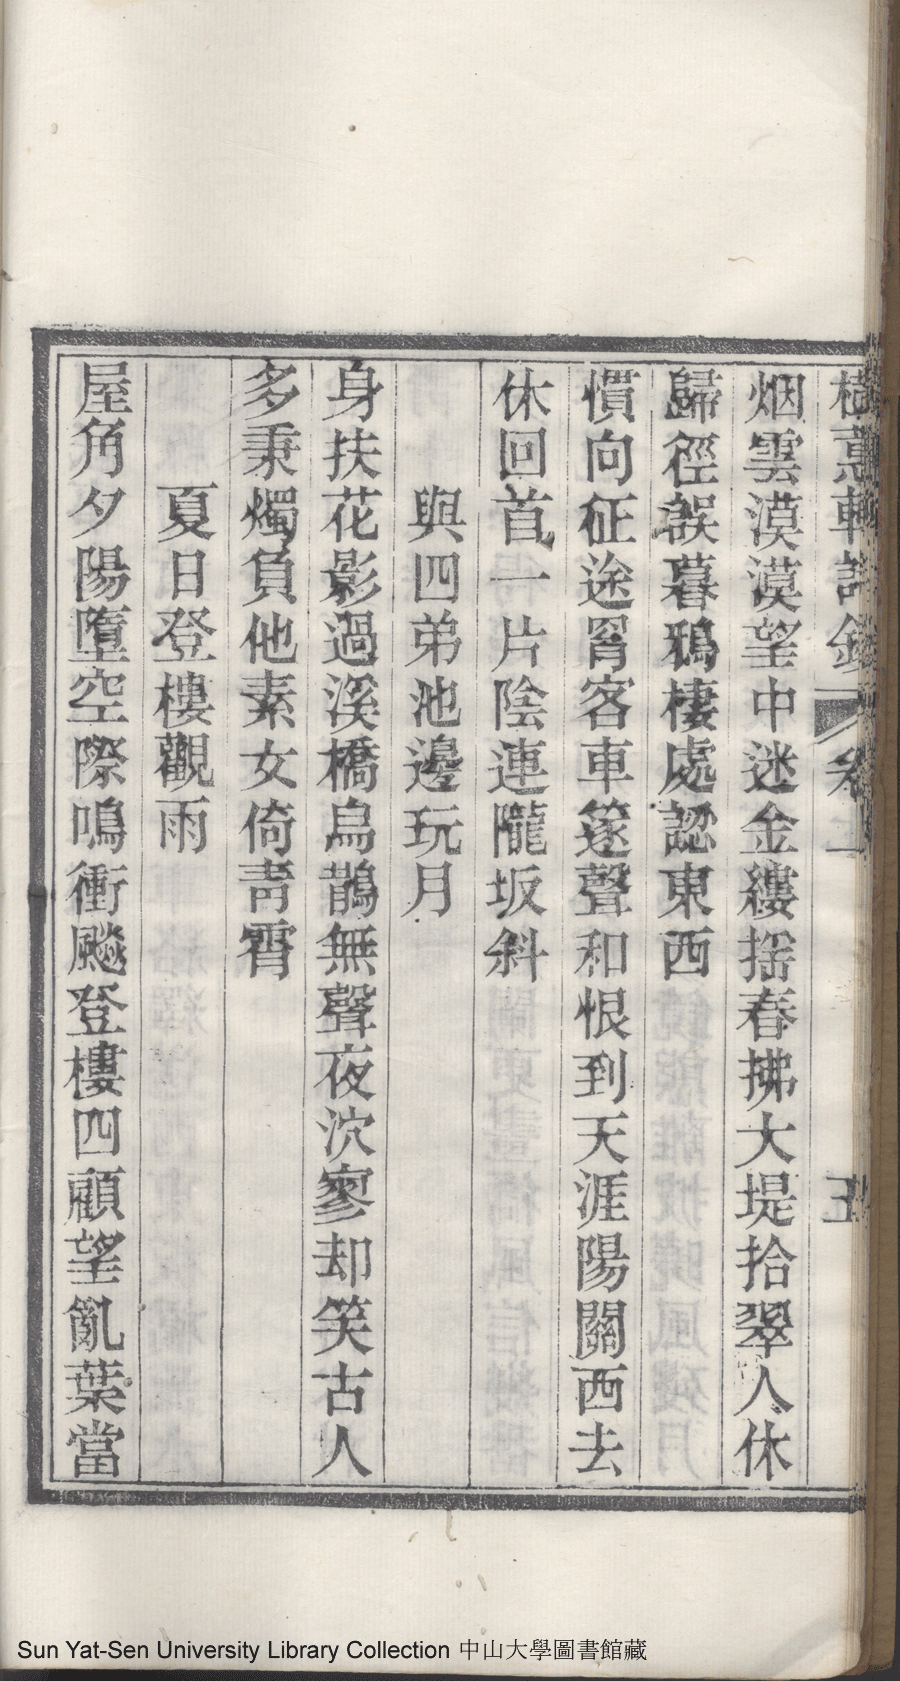 樹蕙軒詩鈔 卷二 五
烟雲漠漠望中迷金縷摇春拂大堤拾翠人休
歸徑誤暮鴉棲處認東西
慣向征途罥客車篴聲和恨到天涯陽關西去
休回首一片陰連隴坂斜
與四弟池邊玩月
身扶花影過溪橋烏鵲無聲夜泬寥却笑古人
多秉燭負他素女倚青霄
夏日登樓觀雨
屋角夕陽墮空際鳴衝飈登樓四顧望亂葉當
Sun Yat-Sen University Library Collection 中山大學圖書館藏